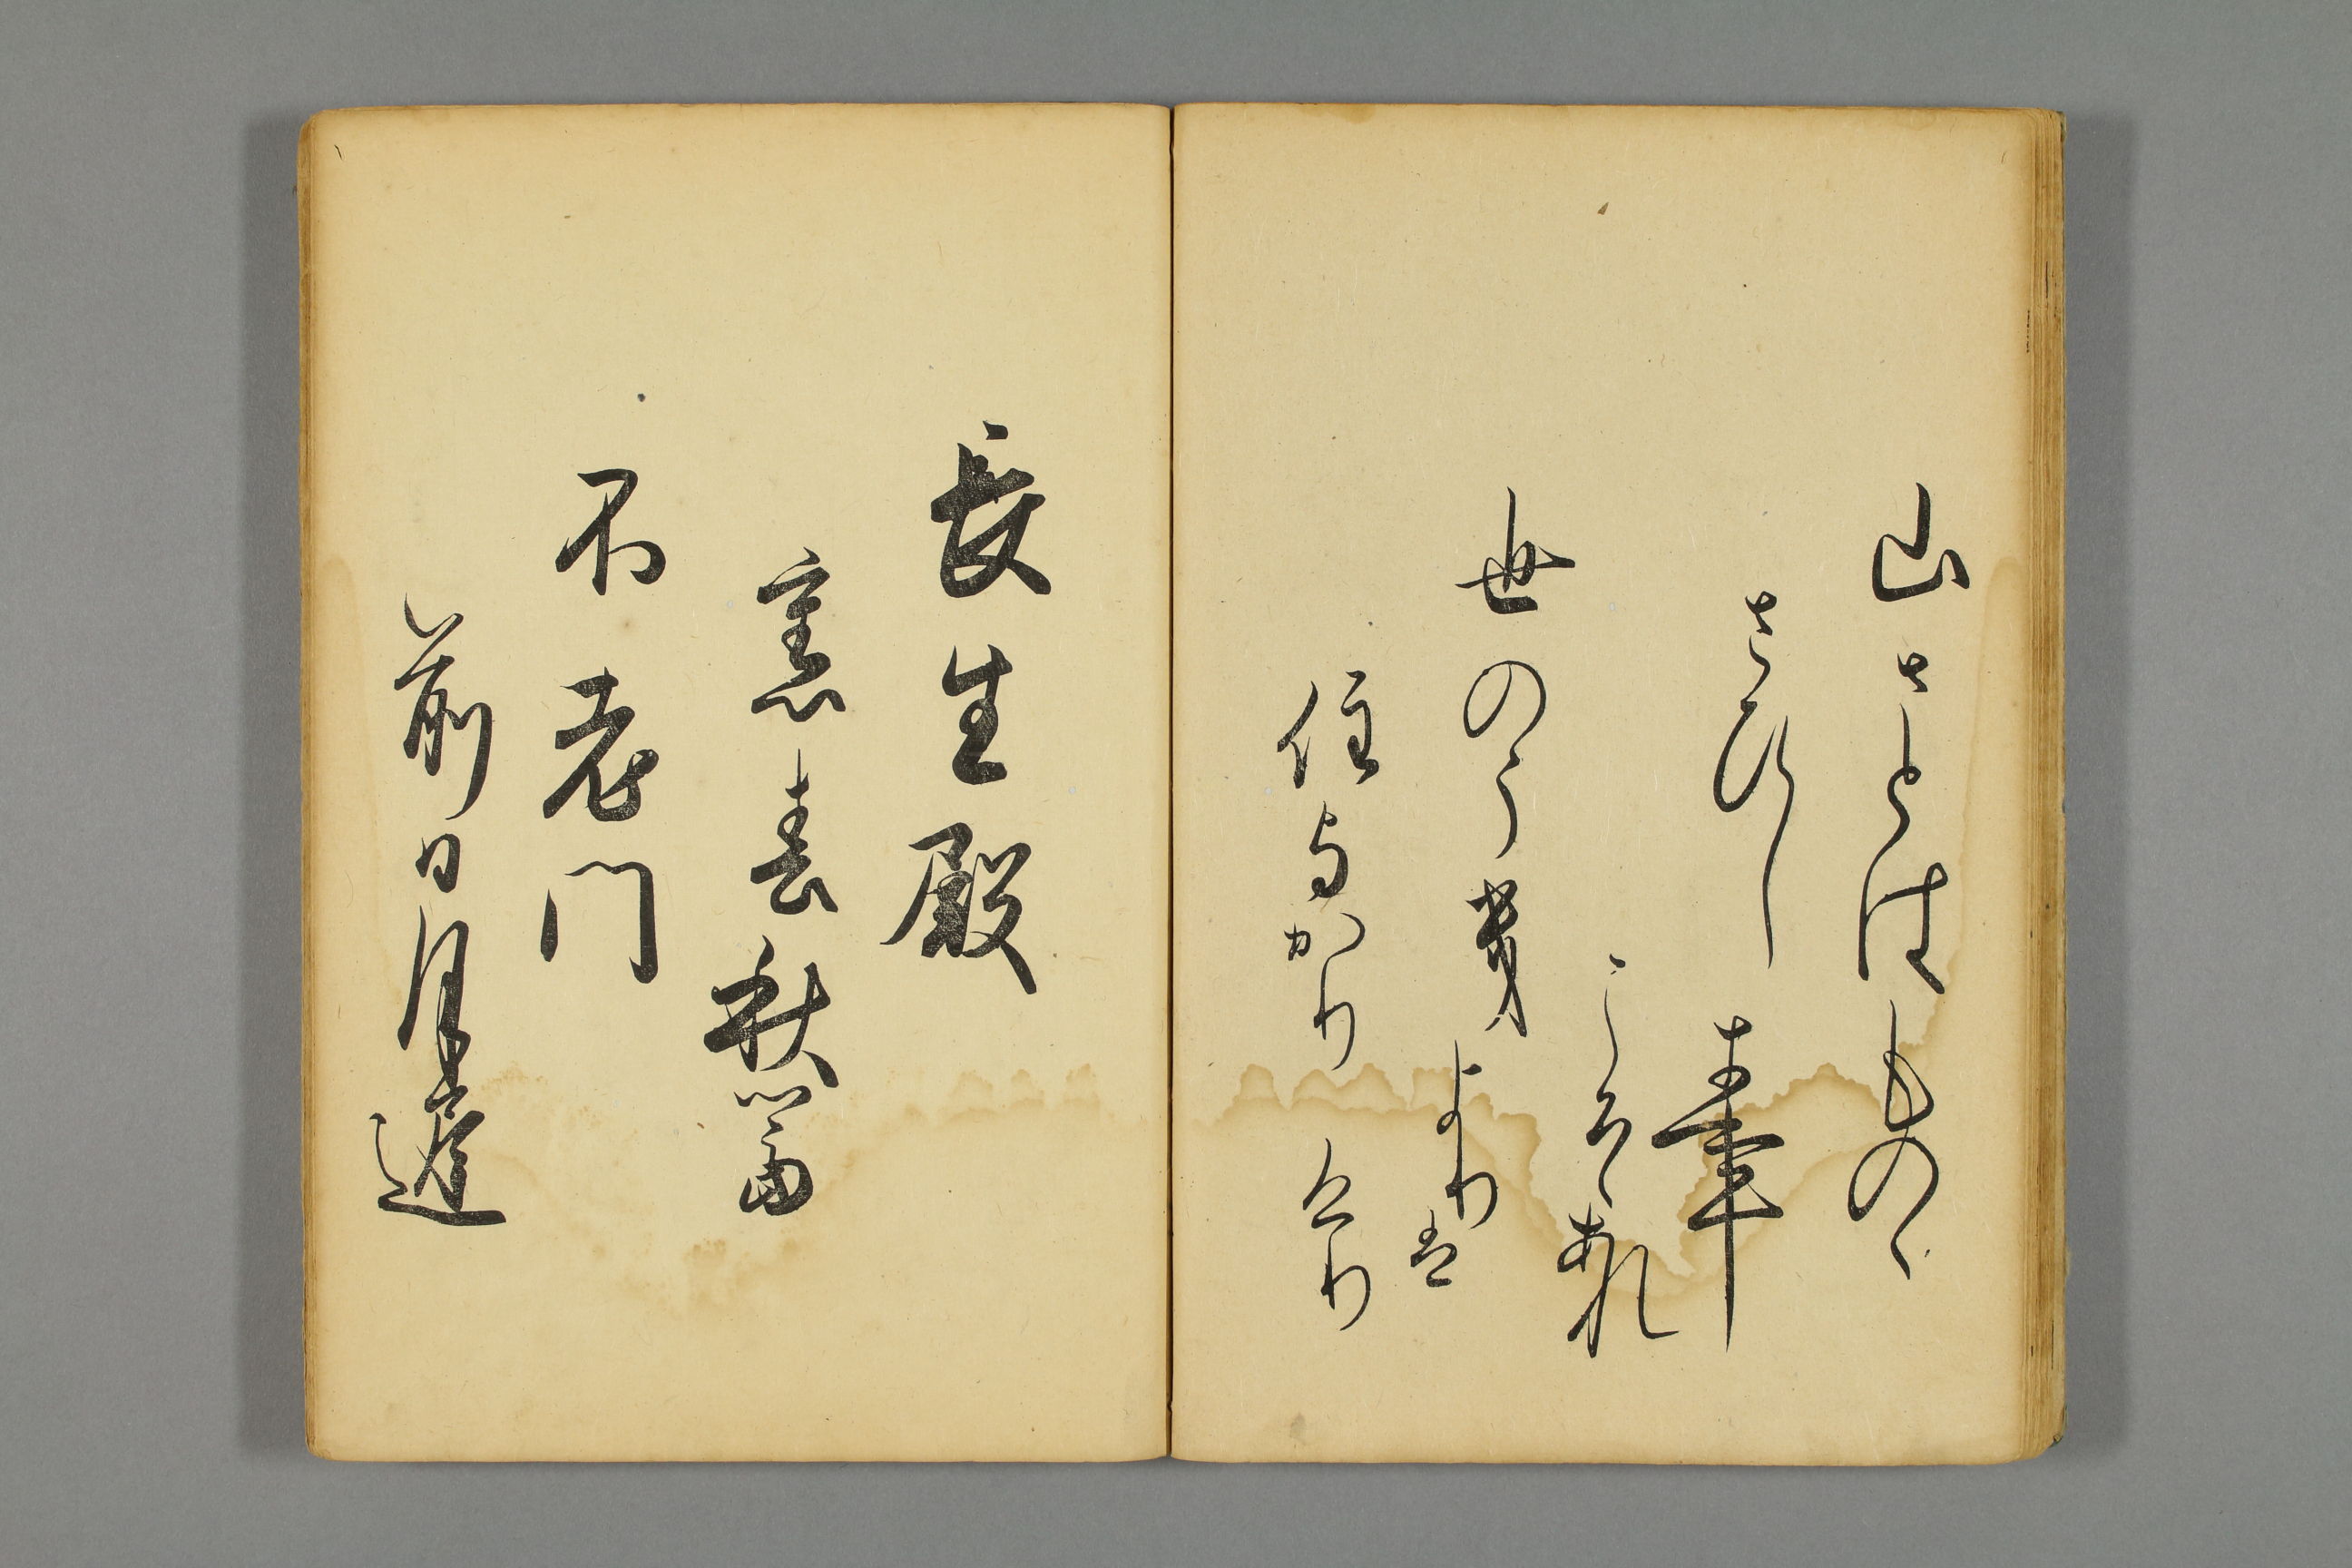 山さとはもの丶
さひしき事
こそあれ
世のうき
よりは
住よかりけり
長生殿
裏春秋富
不老門
前日月遲